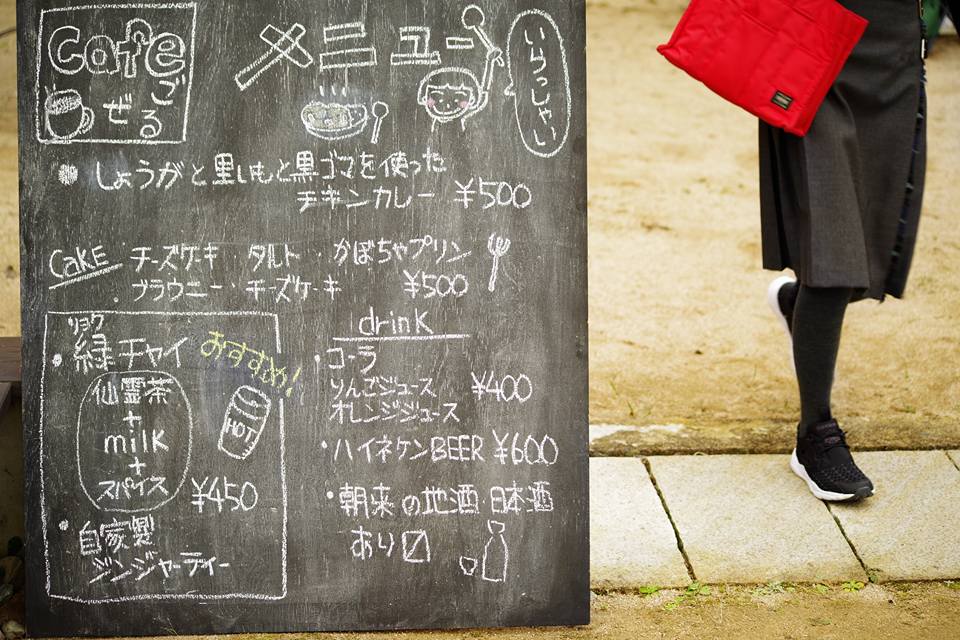 Cafe
ごぜる
メニュー
いらっしゃい
しょうがと里いもと黒ゴマを使った
チキンカレー ¥500
CaKE チーズケーキ タルト・かぼちゃプリン
・ブラウニー・チーズケーキ ¥500
リョク
・緑チャイ おすすめ!
仙霊茶
+
milK
+
スパイス
¥450
HOT
・自家製
ジンジャーティー
drinK
・コーラ
りんごジュース ¥400
オレンジジュース
・ハイネケンBEER ¥600
・朝来の地酒・日本酒
あり〼